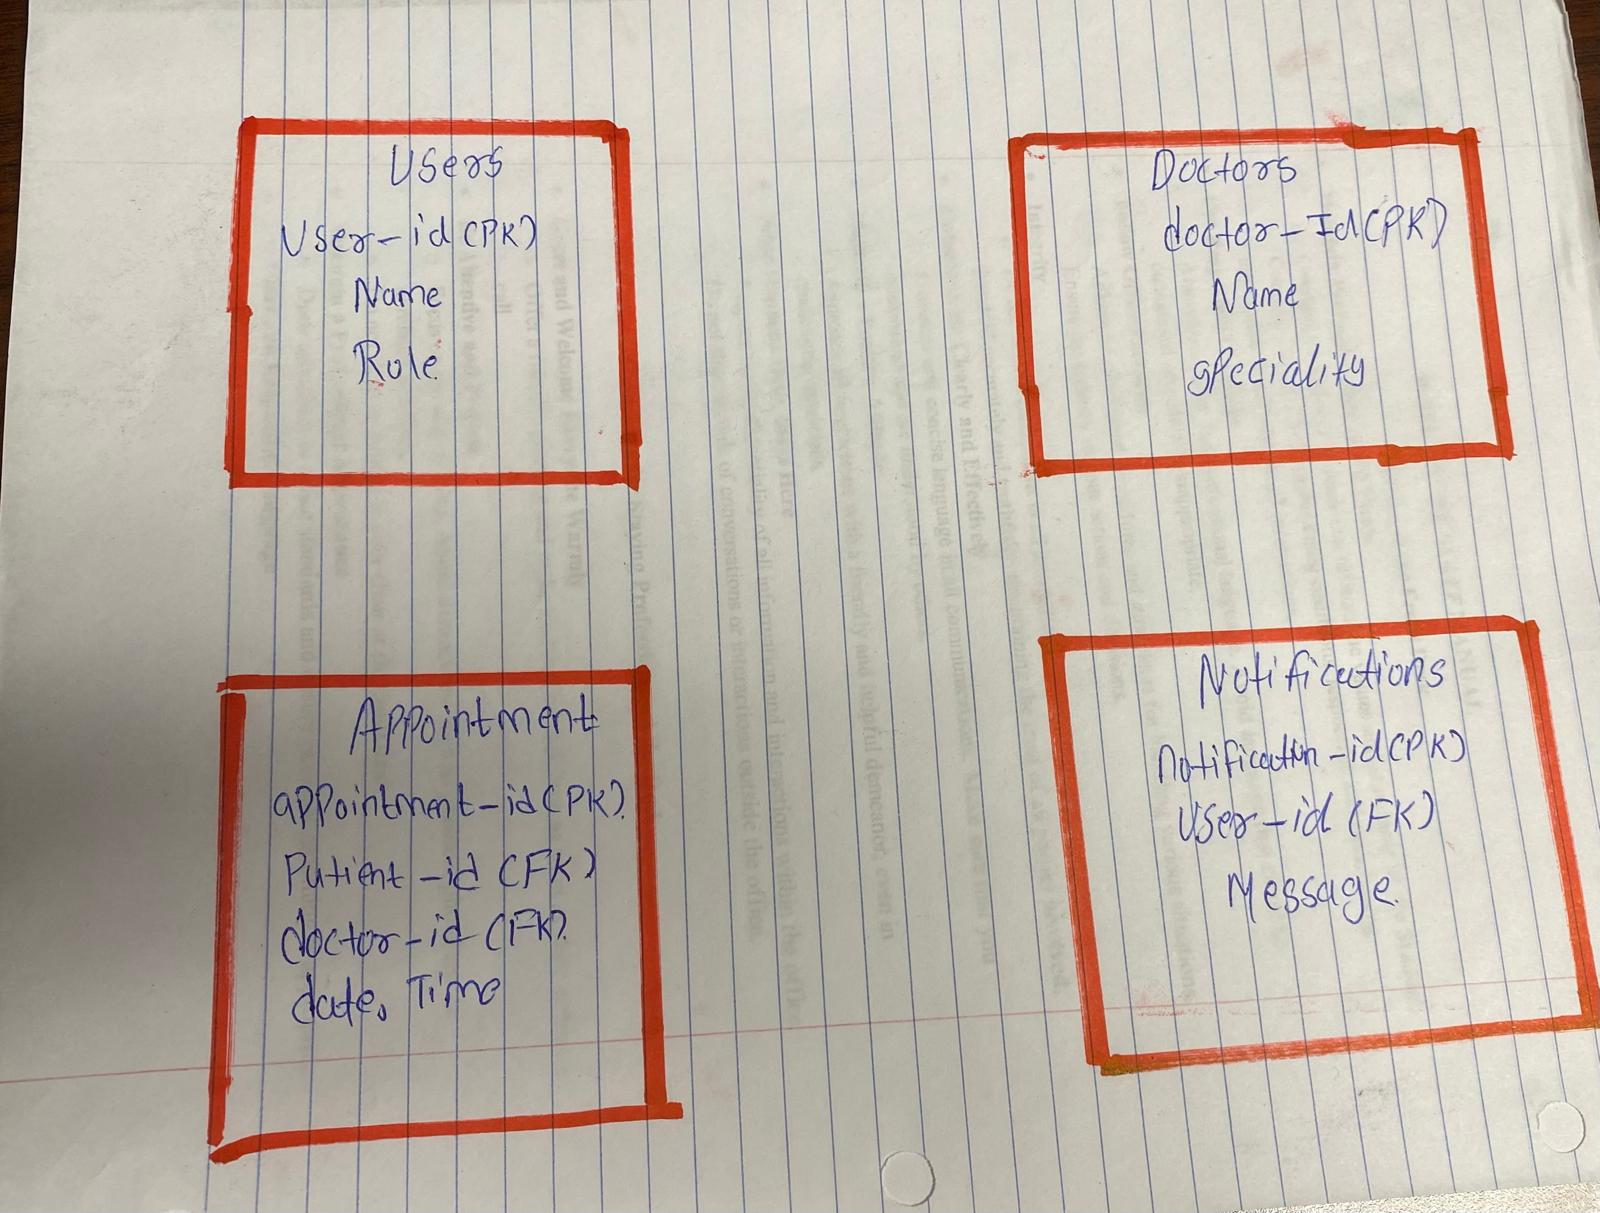 Users
User-id (PK)
Name
Role
Doctors
doctor-Id (PK)
Name
speciality
Appointment
appointment-id (PK)
Patient-id (FK)
doctor-id (FK)
date, Time
Notifications
notification-id (PK)
User-id (FK)
Message